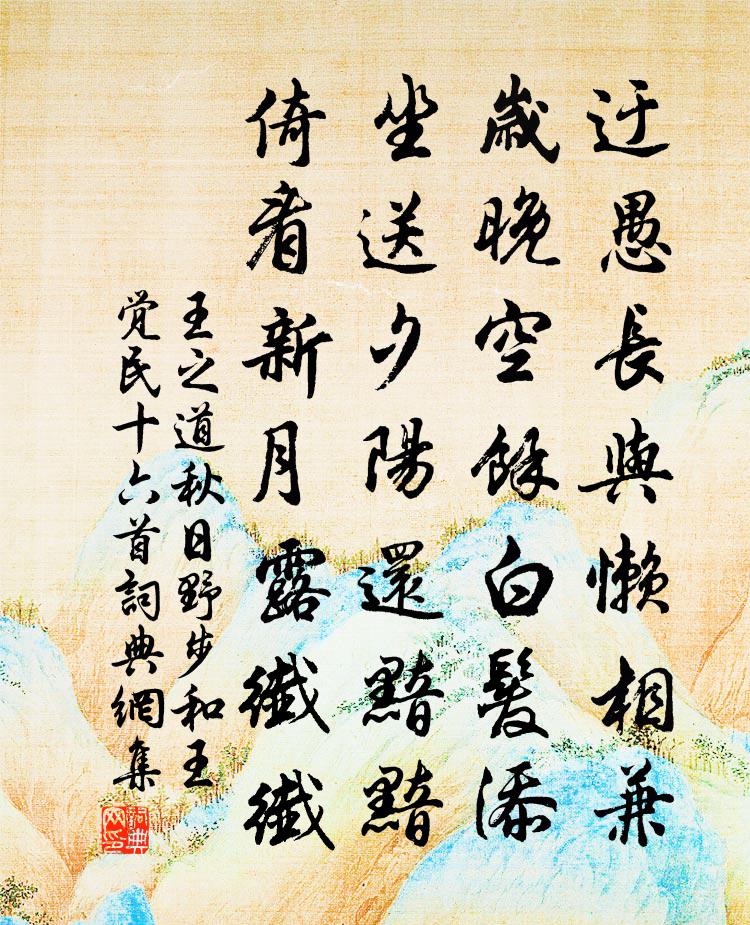 迂愚長與懶相兼
歲晚空餘白髮添
坐送夕陽還黯黯
倚看新月露纖纖
王之道秋日野步和王
覺民十六首詞典網集
詞典
网印